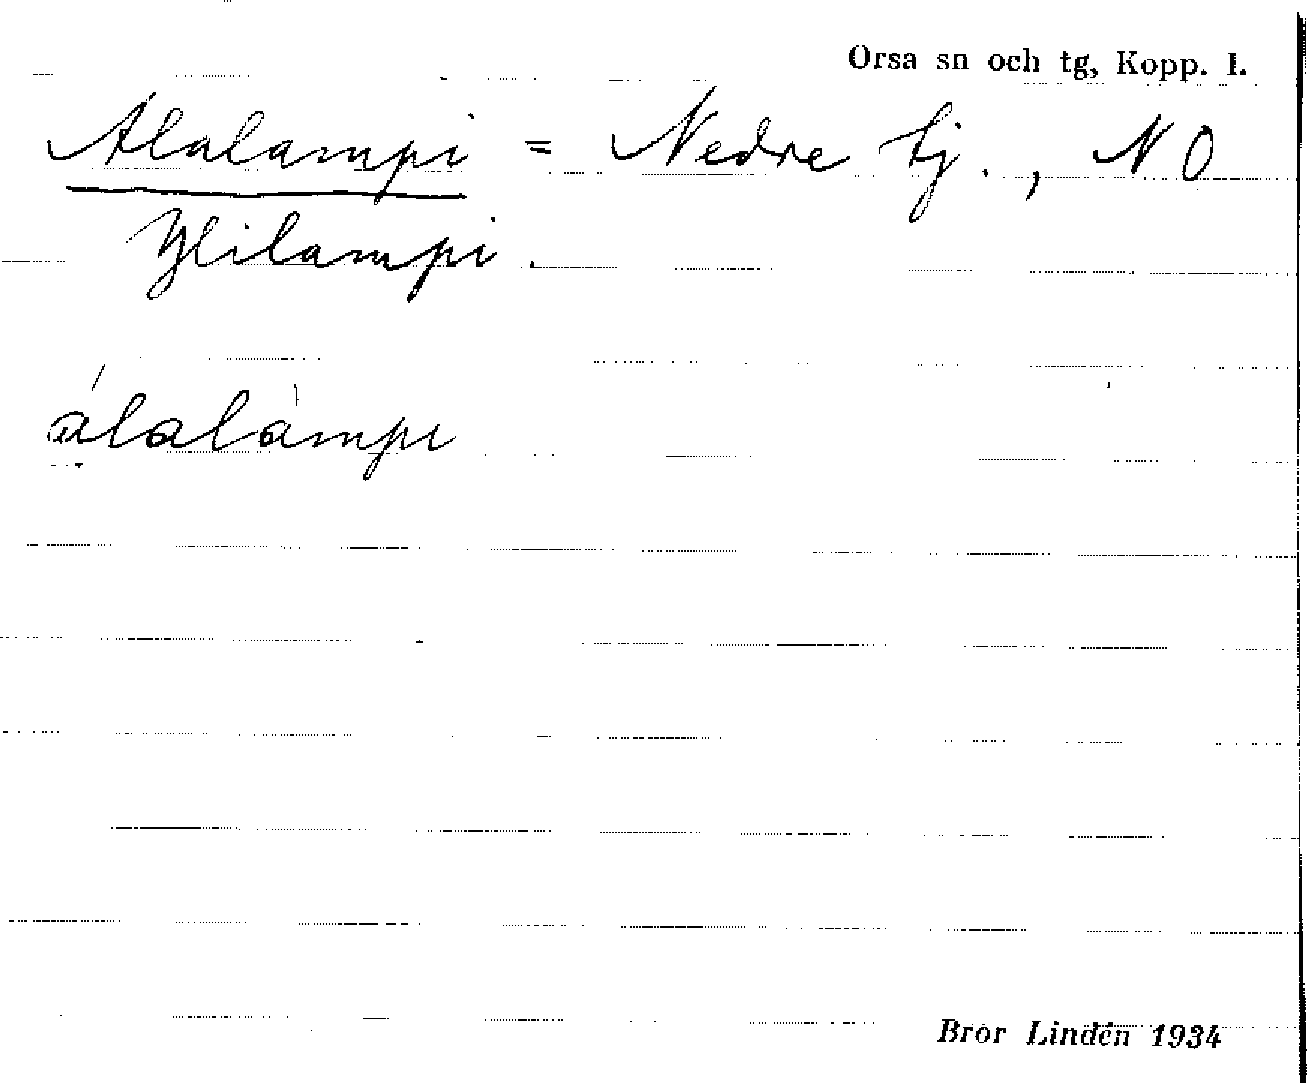 Orsa sn och tg, Kopp. l.
Alalampi = Nedre tj., NO
Ylilampi.
álalàmpi
Bror Lindén 1934